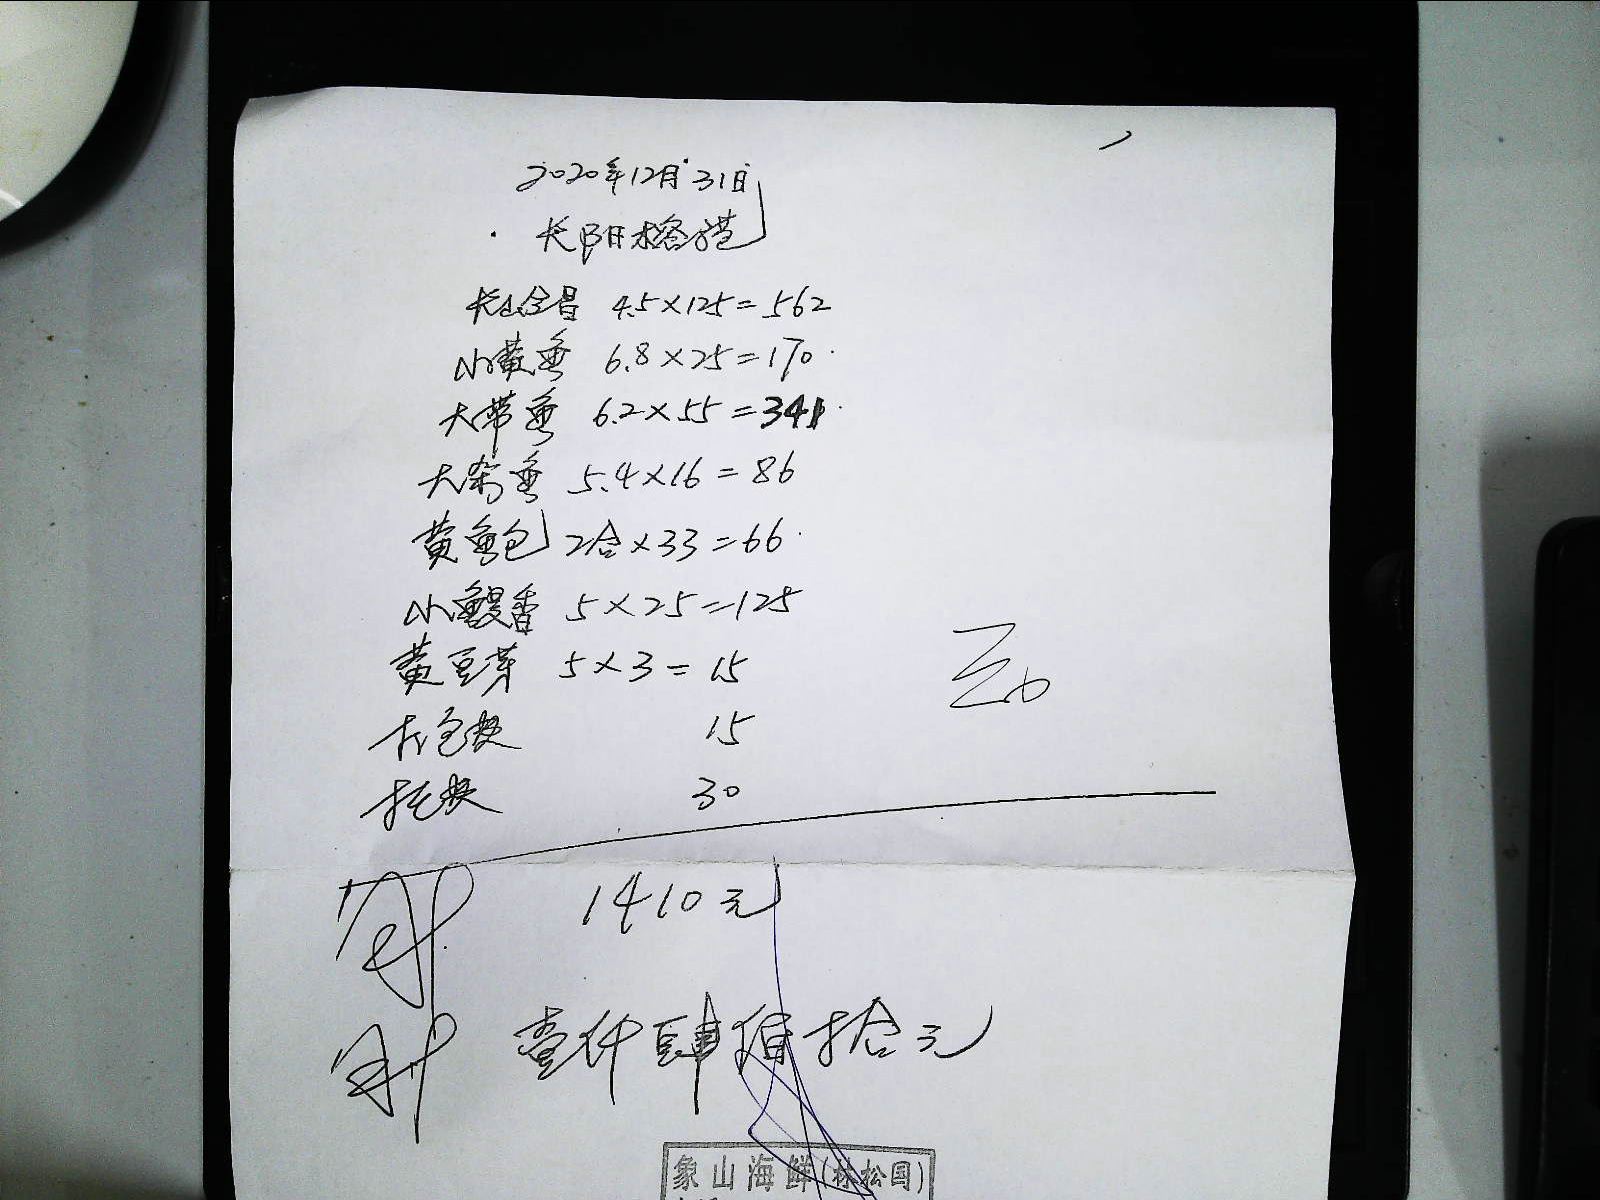 2020年12月31日
长阳木
4.5×125=562
小黄鱼 6.8×25=170
大带鱼 6.2×55=341
大 鱼 5.4×16=86
黄鱼包 2合×33=66
小鳗香 5×25=125
黄豆芽 5×3=15
15
30
1410元
壹仟肆佰拾元
象山海鲜(林松国)